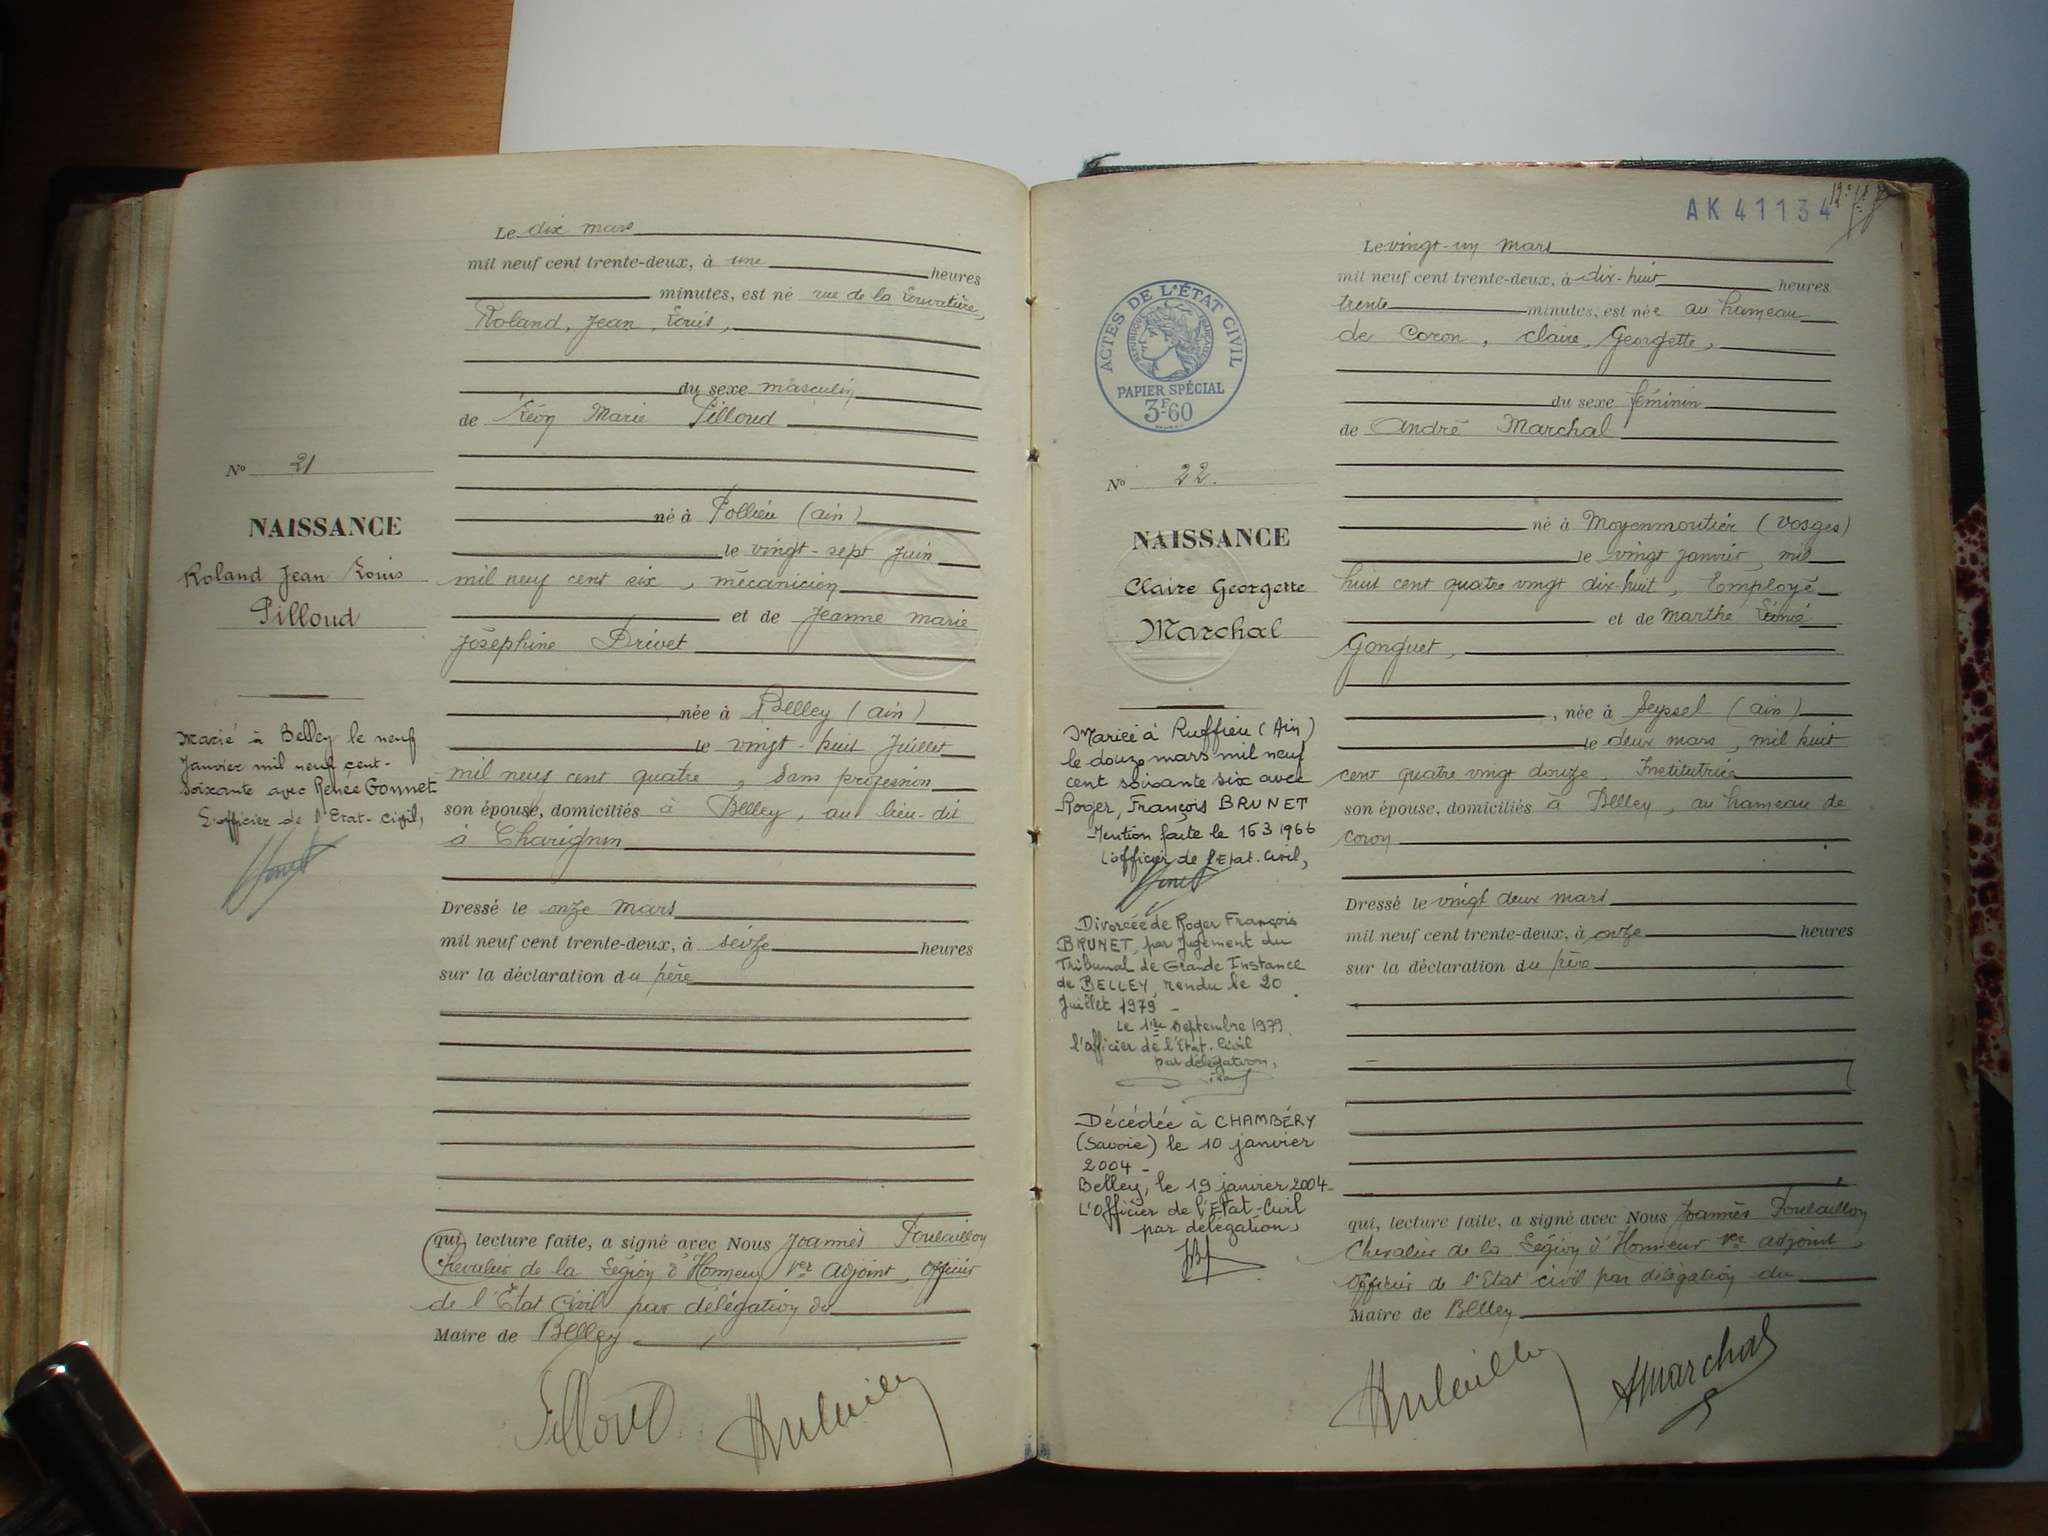 Le dix mars
mil neuf cent trente-deux, à une heures
minutes, est né rue de la Louvatière,
Roland, Jean, Louis,
du sexe masculin
de Léon Marie Pilloud
né à Pollieu (ain)
le vingt-sept juin
mil neuf cent six, mécanicien
et de Jeanne marie
Joséphine Drivet
, née à Belley (ain)
le vingt-huit Juillet
mil neuf cent quatre, sans profession
son épouse, domiciliés à Belley, au lieu-dit
à Charignin
Dressé le onze mars
mil neuf cent trente-deux, à seize heures
sur la déclaration du père
qui, lecture faite, a signé avec Nous Joannès Poulaillon
Chevalier de la Légion d'Honneur 1er adjoint, officier
de l'Etat civil par délégation du
Maire de Belley
Pilloud
No 21
NAISSANCE
Roland Jean Louis
Pilloud
Marié à Belley le neuf
Janvier mil neuf cent-
soixante avec Renée Gonnet
L'officier de l'Etat-civil,
AK 41134
Le vingt-un mars
mil neuf cent trente-deux, à dix-huit heures
trente minutes, est née au hameau
de Coron, Claire, Georgette,
du sexe féminin
de André Marchal
né à Moyenmoutier (Vosges)
le vingt janvier, mil
huit cent quatre vingt dix-huit, Employé
et de Marthe
Gonguet,
, née à Seyssel (ain)
le deux mars, mil huit
cent quatre vingt douze, Institutrice
son épouse, domiciliés à Belley, au hameau de
coron
Dressé le vingt deux mars
mil neuf cent trente-deux, à onze heures
sur la déclaration du père
qui, lecture faite, a signé avec Nous Joannès Poulaillon
Chevalier de la Légion d'Honneur 1er adjoint,
Officier de l'Etat civil par délégation du
Maire de Belley
AMarchal
ACTES DE L'ÉTAT CIVIL
RÉPUBLIQUE FRANÇAISE
PAPIER SPÉCIAL
3F60
No 22.
NAISSANCE
Claire Georgette
Marchal
Mariée à Ruffieu (Ain)
le douze mars mil neuf
cent soixante six avec
Roger, François BRUNET
Mention faite le 16 3 1966
L'officier de l'Etat-Civil,
Divorcée de Roger François
BRUNET, par Jugement du
Tribunal de Grande Instance
de BELLEY, rendu le 20
Juillet 1979 -
Le 1er Septembre 1979.
l'officier de l'Etat-Civil
par délégation,
Décédée à CHAMBÉRY
(Savoie) le 10 janvier
2004 -
Belley, le 19 janvier 2004-
L'Officier de l'Etat-Civil
par délégation,